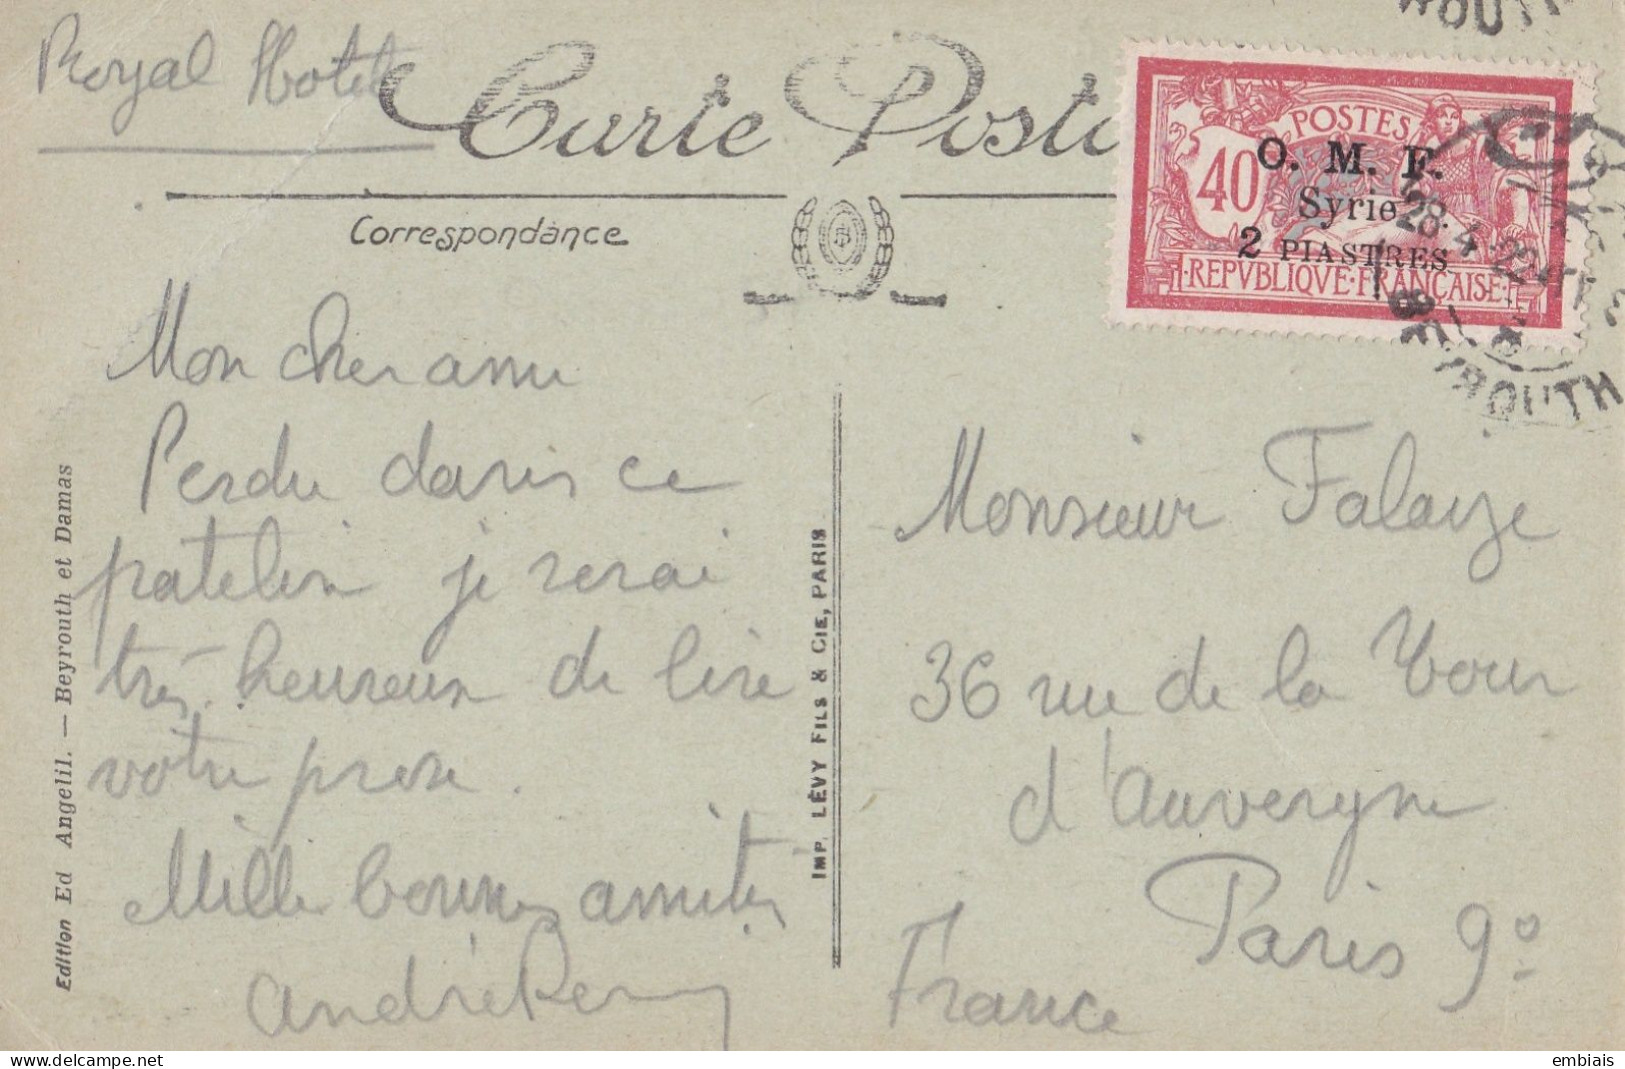 Royal Hotel
Carte Posta
Correspondance
POSTES
40
O. M. F.
Syrie
2 PIASTRES
REPVBLIQVE·FRANÇAISE
28·4·22
BEYROUTH
Mon cher ami
Perdu dans ce
patelin je serai
très heureux de lire
votre prose.
Mille bonnes amitiés
André
Edition Ed Angelil. — Beyrouth et Damas
IMP. LÉVY FILS & CIE, PARIS
Monsieur Falaize
36 rue de la Tour
d'Auvergne
Paris 9º
France
delcampe.net
embiais